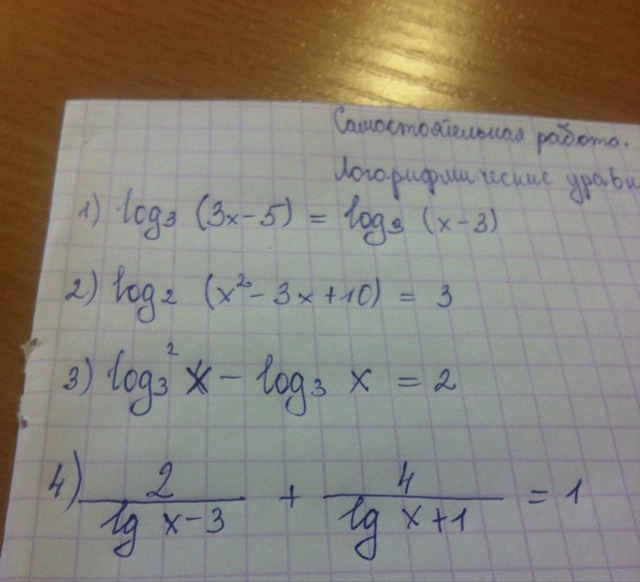 Самостоятельная работа.
Логарифмические уравн
1) log₃ (3x-5) = log₃ (x-3)
2) log₂ (x²-3x+10) = 3
3) log₃² x - log₃ x = 2
4) 2/(lg x-3) + 4/(lg x+1) = 1